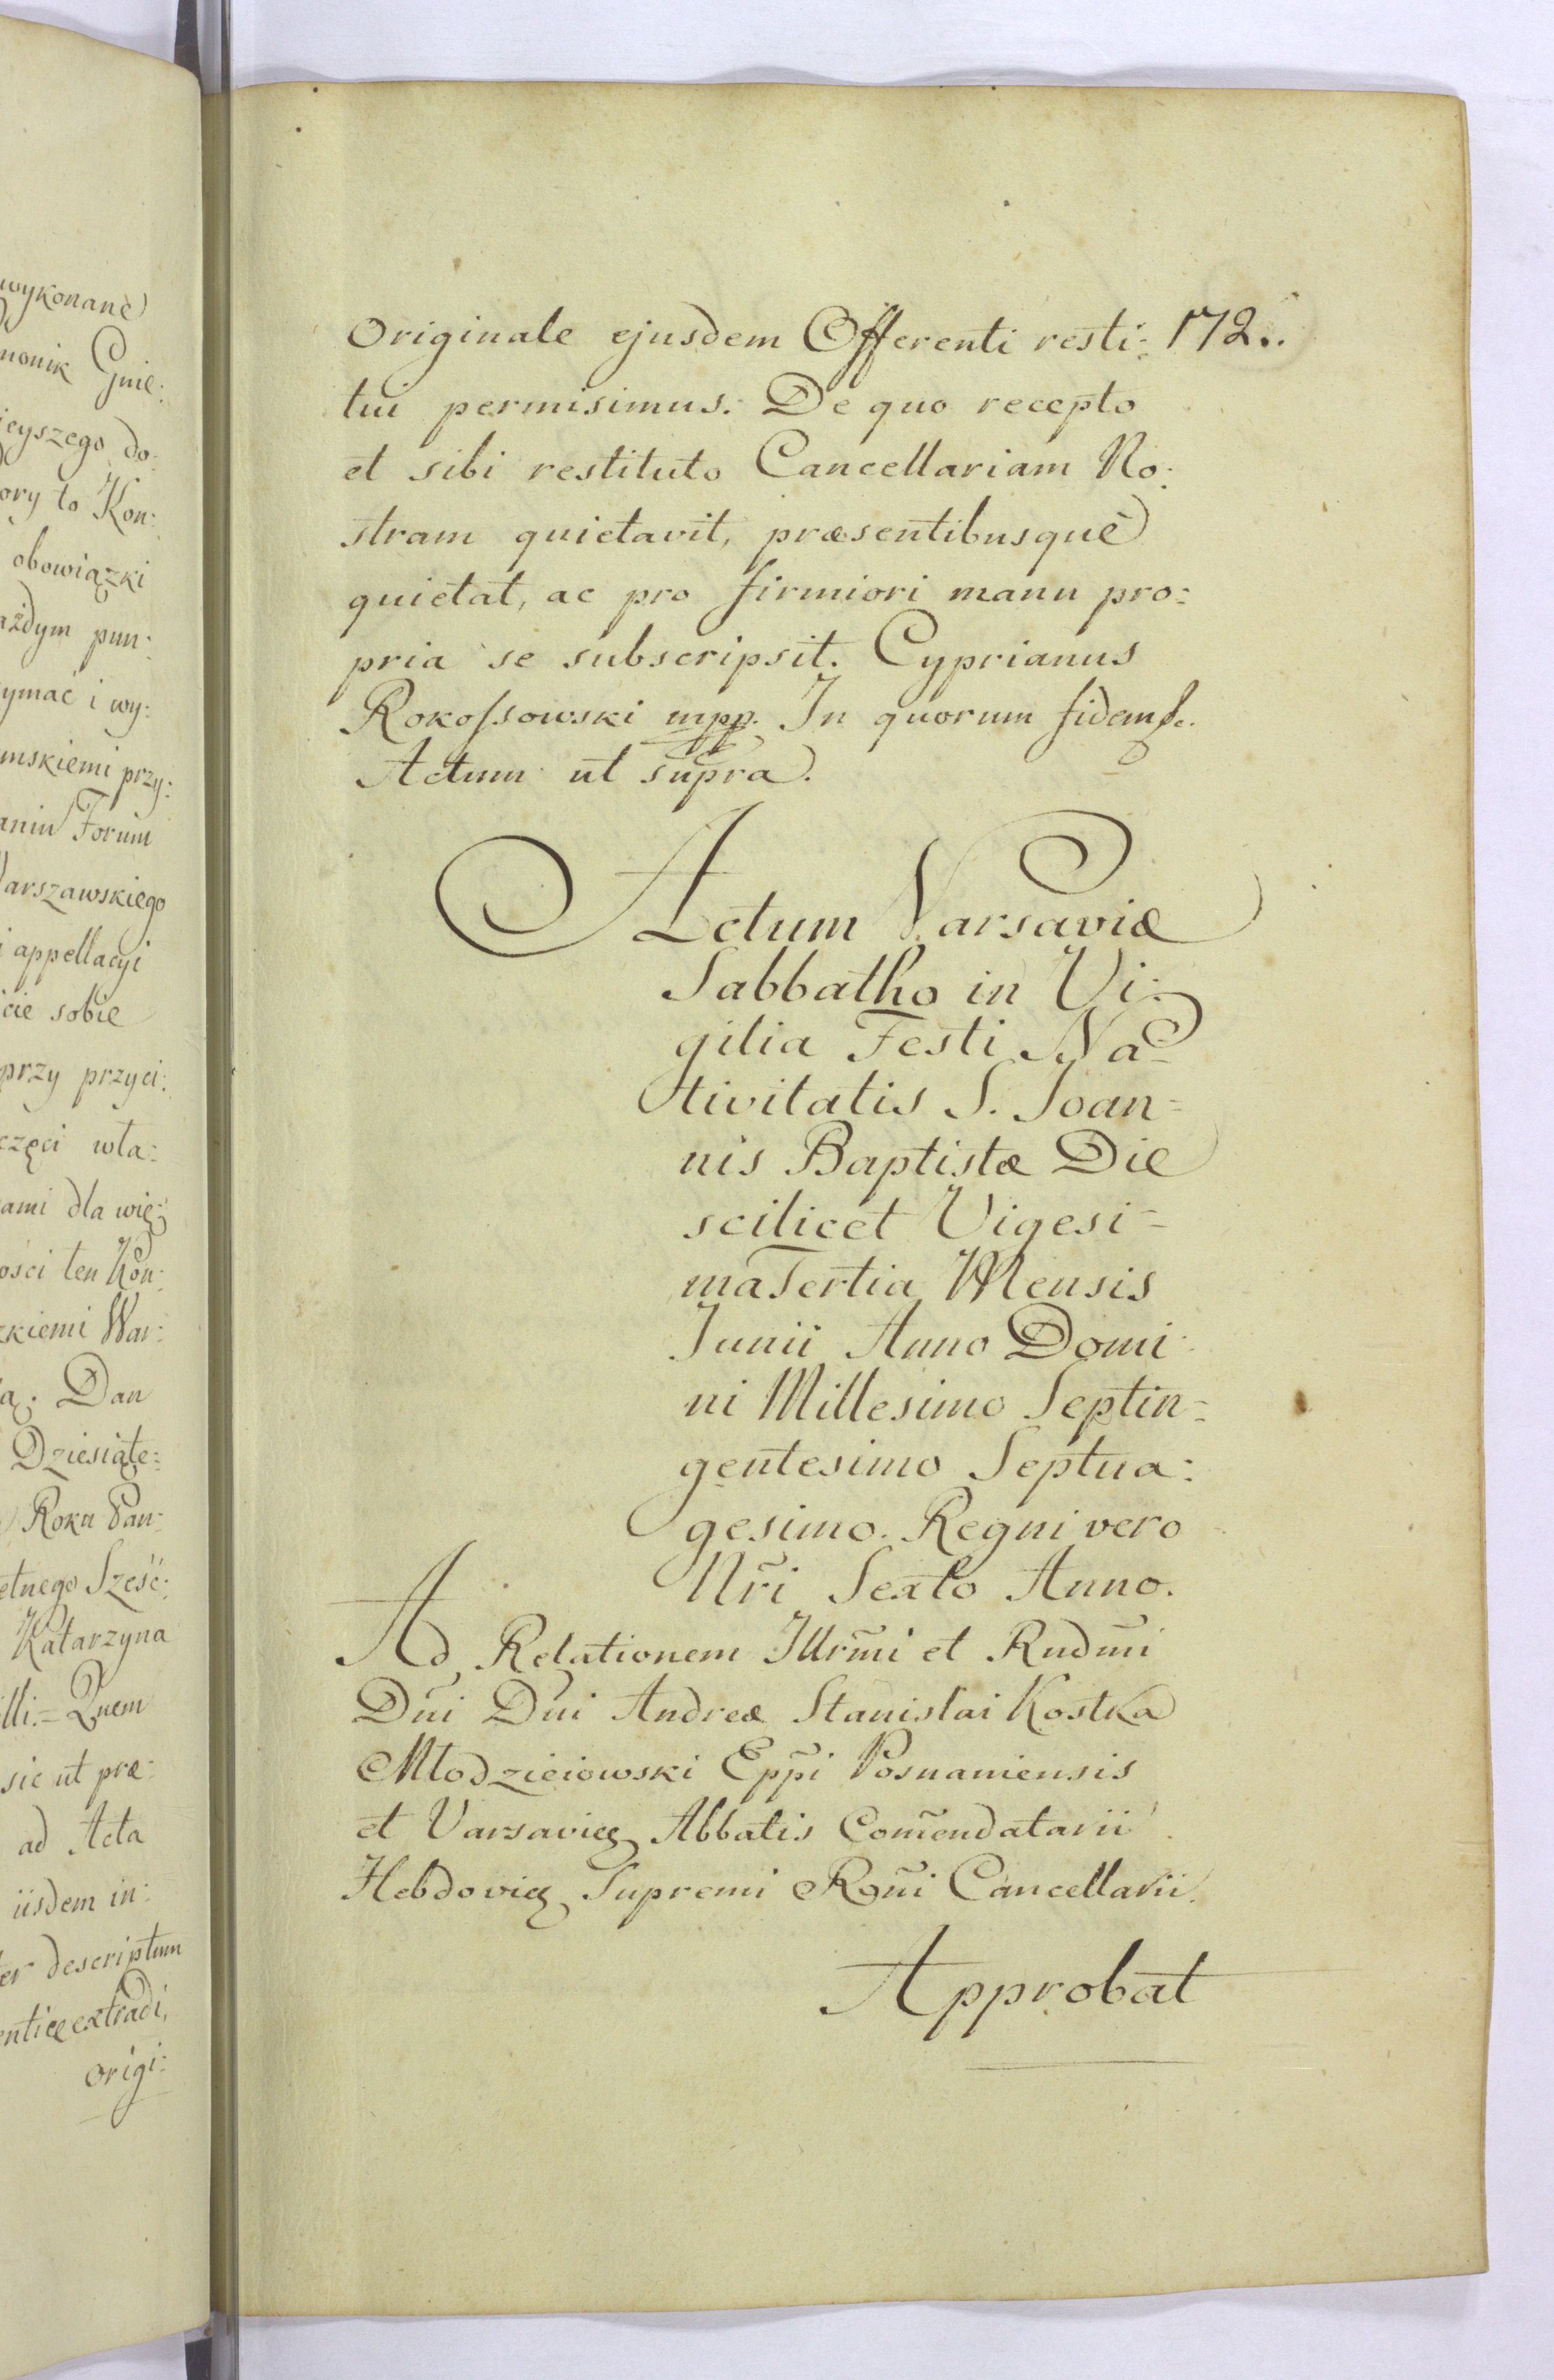 wykonane
nonik Gnie:
ieyszego do:
ory to Kon:
obowiązki
ażdym pun:
ymać i wy:
mskiemi przy:
aniu Forum
Warszawskiego
i appellacyi
cie sobie
przy przyci:
częci wła:
ami dla wię:
ości ten Kon:
zkiemi War:
a. Dan
Dziesiąte:
Roku Pan:
etnego Sześć:
Katarzyna
lli.= Quem
sic ut præ:
ad Acta
iisdem in:
er descriptum
enticę extradi,
origi:
Originale ejusdem Offerenti resti: 172.
tui permisimus. De quo recepto
et sibi restituto Cancellariam No:
stram quietavit, præsentibusque
quietat, ac pro firmiori manu pro:
pria se subscripsit. Cyprianus
Rokoſsowski mpp. In quorum fidem &c.
Actum ut supra.
Actum Varsaviæ
Sabbatho in Vi:
gilia Festi Na=
tivitatis S. Joan=
nis Baptistæ Die
scilicet Vigesi=
ma Tertia Mensis
Junii Anno Domi:
ni Millesimo Septin=
gentesimo Septua:
gesimo. Regni vero
Nr̃i Sexto Anno.
Ad Relationem Illrm̃i et Rndm̃i
Dñi Dñi Andreæ Stanislai Kostka
Młodzieiowski Epp̃i Posnaniensis
et Varsavięs Abbatis Com̃endatarii
Hebdovięs Supremi Rgñi Cancellarii.
Approbat